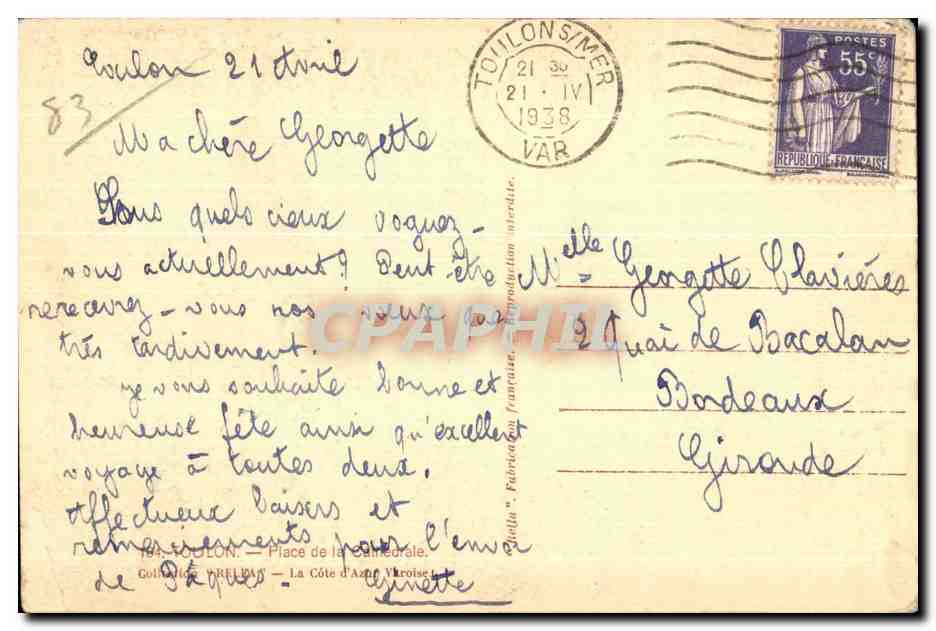 Toulon 21 Avril
83
Ma chère Georgette
Sous quels cieux voguez-
vous actuellement? Peut être
recevrez-vous nos vœux que
très tardivement.
Je vous souhaite bonne et
heureuse fête ainsi qu'excellent
voyage à toutes deux.
Affectueux baisers et
remerciements pour l'envoi
de Pâques - Ginette
184. TOULON. — Place de la Cathédrale.
Collection "RELLA" — La Côte d'Azur Varoise
"Rella". Fabrication française. Reproduction interdite.
TOULON S/MER
21 30
21 · IV
1938
VAR
POSTES
55c
REPUBLIQUE FRANÇAISE
Melle Georgette Clavières
2 Quai de Bacalan
Bordeaux
Gironde
CPAPHIL